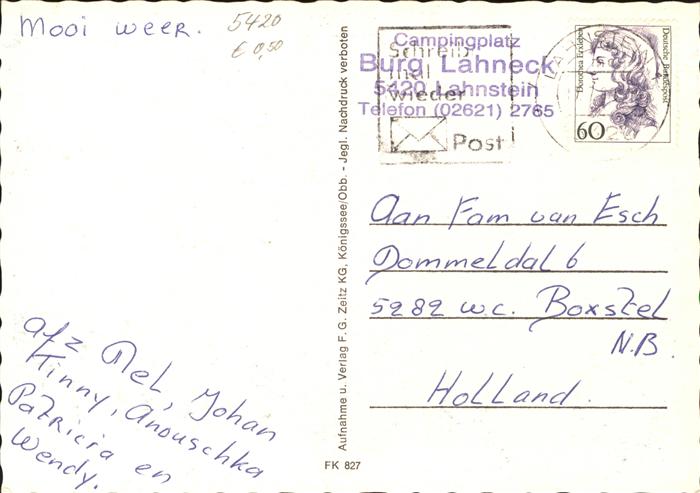 Mooi weer.
5420
€ 0,50
afz Nel, Johan
Tinny, Anouschka
Patricia en
Wendy.
Aufnahme u. Verlag F. G. Zeitz KG, Königssee/Obb. - Jegl. Nachdruck verboten
FK 827
Campingplatz
Burg Lahneck
5420 Lahnstein
Telefon (02621) 2765
Schreib
mal
wieder
Post
Dorothea Erxleben
Deutsche Bundespost
60
Aan Fam van Esch
Dommeldal 6
5282 w.c. Boxstel
N.B.
Holland.